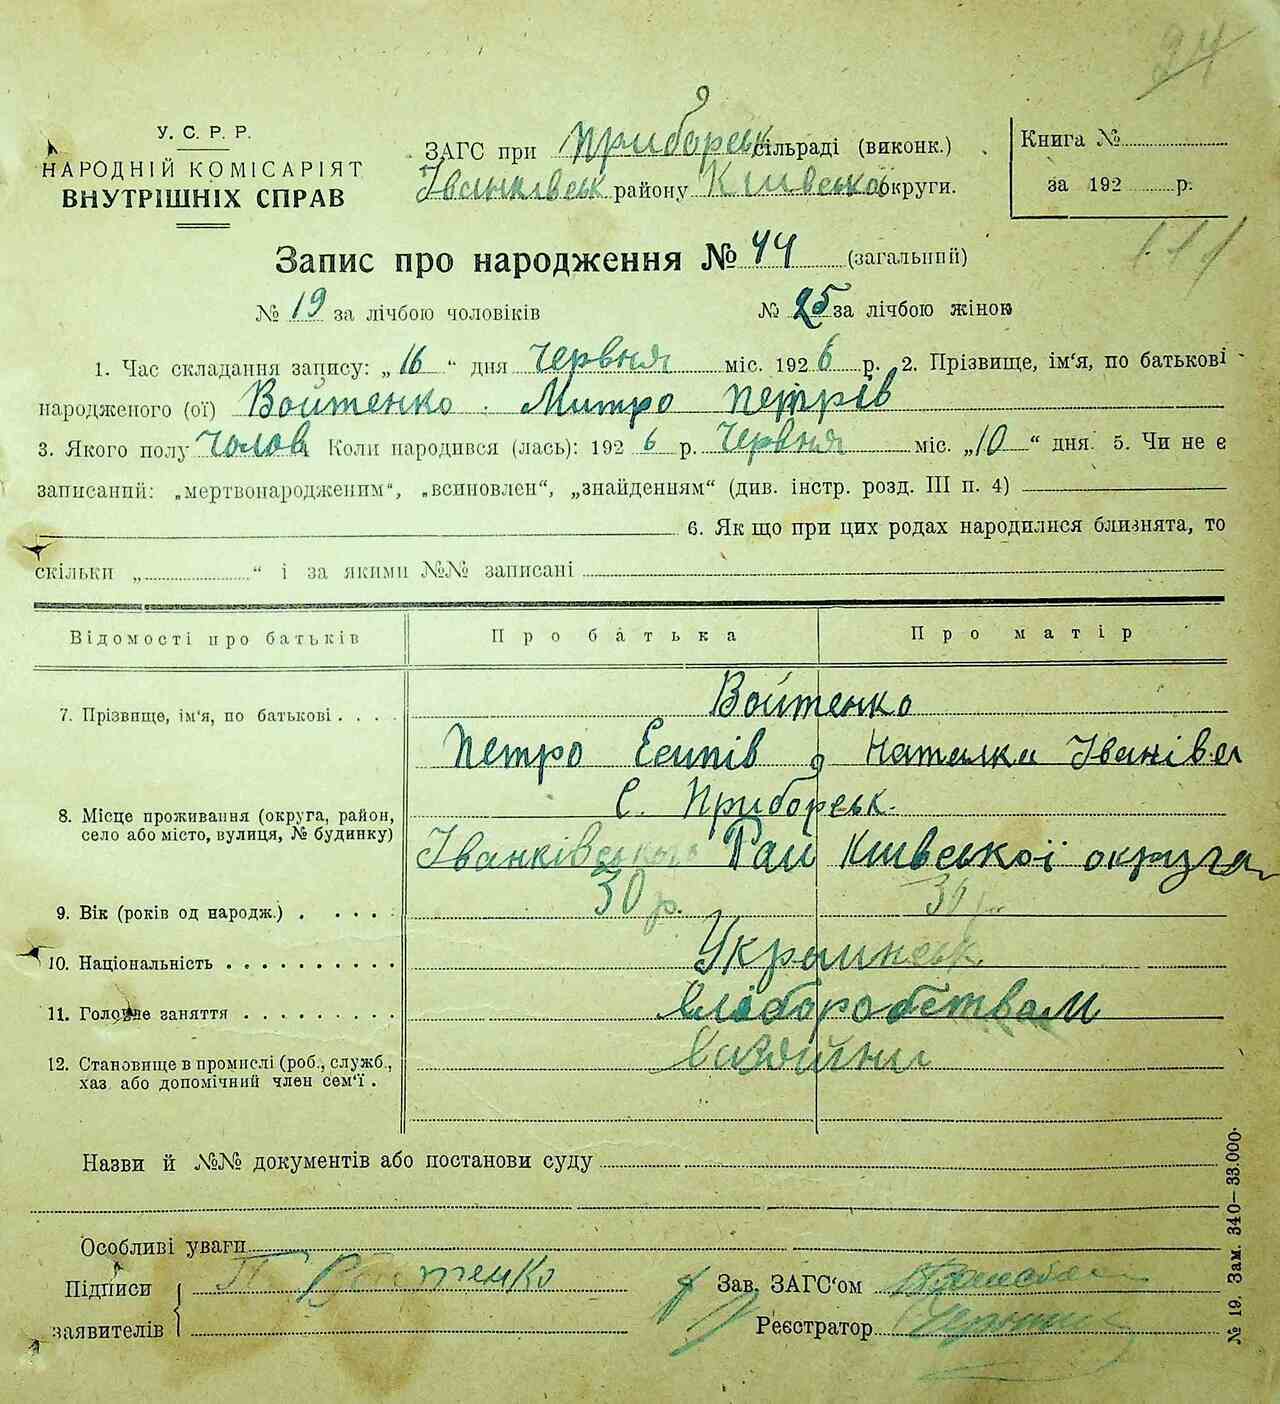 24
У. С. Р. Р.
НАРОДНІЙ КОМІСАРІЯТ
ВНУТРІШНІХ СПРАВ
ЗАГС при Приборськ сільраді (виконк.)
Іванківськ району Київської округи.
Книга №
за 192 р.
Запис про народження № 44 (загальний)
№ 19 за лічбою чоловіків № 25 за лічбою жінок
1. Час складання запису: „16“ дня Червня міс. 1926 р. 2. Прізвище, ім‘я, по батькові
народженого (ої) Войтенко Митро Петрів
3. Якого полу Чолов Коли народився (лась): 1926 р. Червня міс. „10“ дня. 5. Чи не є
записаний: „мертвонародженим“, „всиновлен“, „знайденням“ (див. інстр. розд. III п. 4)
6. Як що при цих родах народилися близнята, то
скільки „ “ і за якими №№ записані
Відомості про батьків Про батька Про матір
Войтенко
7. Прізвище, ім‘я, по батькові . . . .
Петро Есипів Наталка Іванівна
С. Приборськ.
8. Місце проживання (округа, район,
село або місто, вулиця, № будинку)
Іванківського Рай Київської округи
9. Вік (років од народж.) . . . . . 30 р. 30 р.
10. Національність . . . . . . . . . . Українськ
11. Головне заняття . . . . . . . . . Хліборобством
12. Становище в промислі (роб., служб.,
хаз. або допомічний член сем‘ї .
Назви й №№ документів або постанови суду
Особливі уваги
Підписи
заявителів
П Войтенко
Зав. ЗАГС‘ом
Реєстратор
№ 19. Зам. 340—33.000.